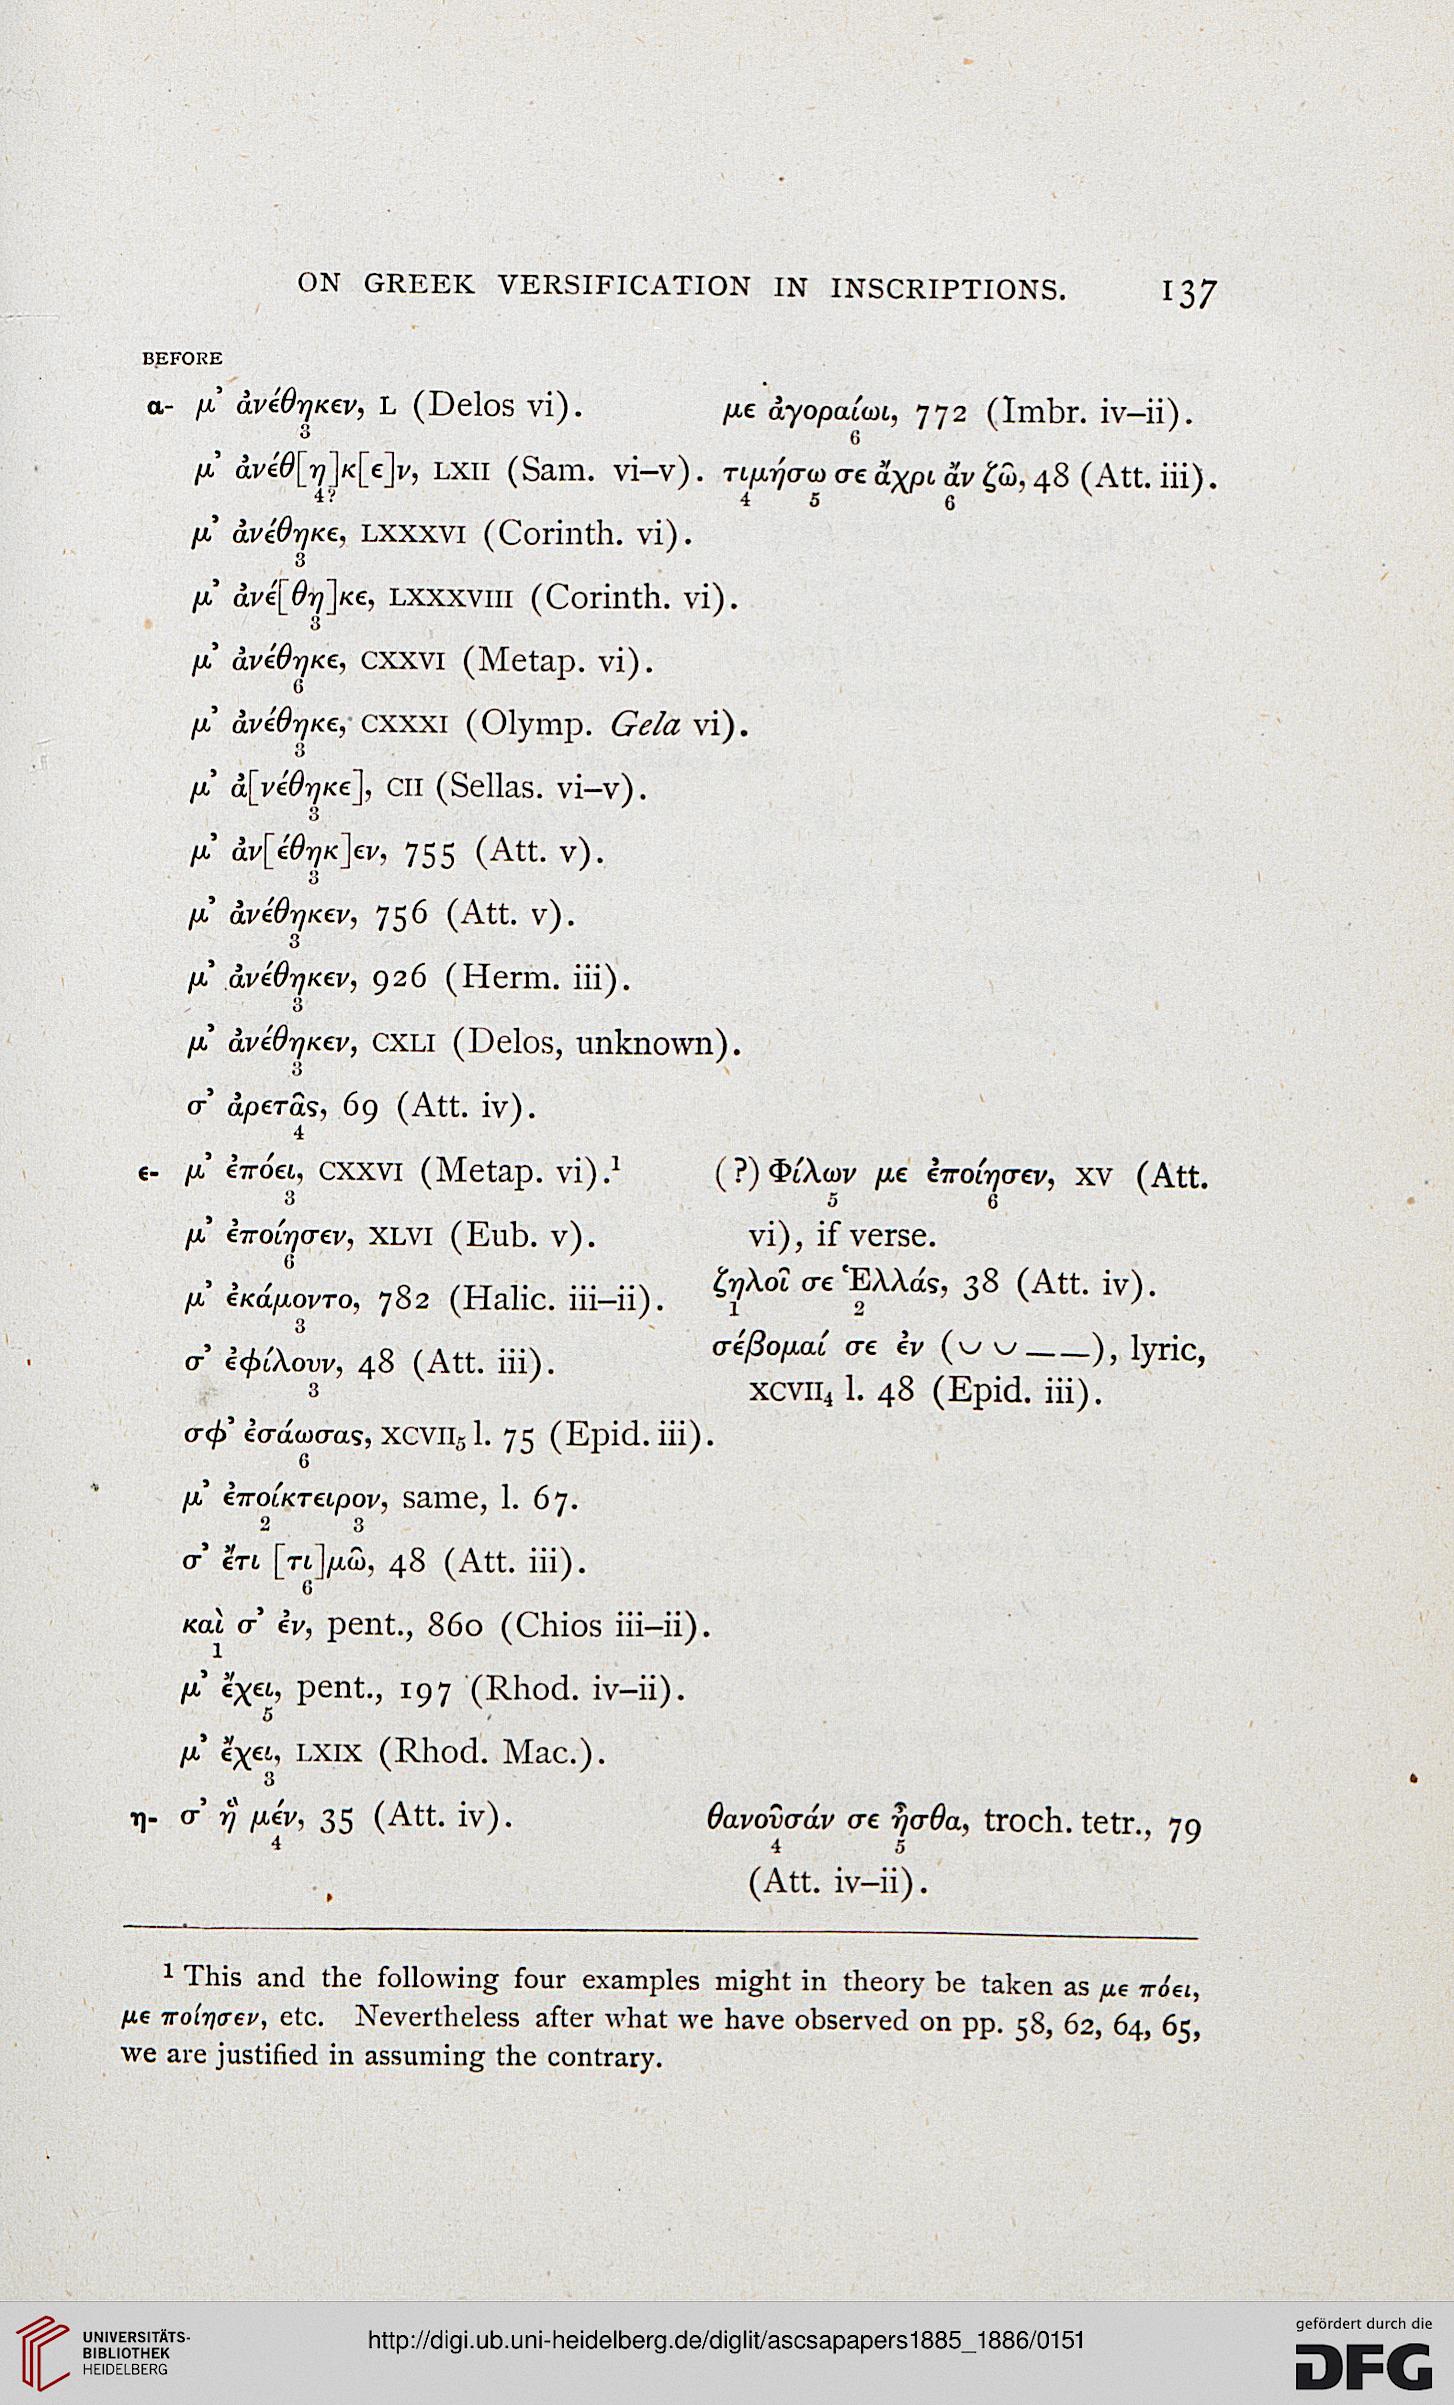 ON GREEK VERSIFICATION IN INSCRIPTIONS. 137
BEFORE
α- μ’ ἀνέθηκεν, L (Delos vi). με ἀγοραίωι, 772 (Imbr. iv–ii).
3 6
μ’ ἀνέθ[η]κ[ε]ν, LXII (Sam. vi–v). τιμήσω σε ἄχρι ἄν ζῶ, 48 (Att. iii).
4? 4 5 6
μ’ ἀνέθηκε, LXXXVI (Corinth. vi).
3
μ’ ἀνέ[θη]κε, LXXXVIII (Corinth. vi).
3
μ’ ἀνέθηκε, CXXVI (Metap. vi).
6
μ’ ἀνέθηκε, CXXXI (Olymp. Gela vi).
3
μ’ ἀ[νέθηκε], CII (Sellas. vi–v).
3
μ’ ἀν[έθηκ]εν, 755 (Att. v).
3
μ’ ἀνέθηκεν, 756 (Att. v).
3
μ’ ἀνέθηκεν, 926 (Herm. iii).
3
μ’ ἀνέθηκεν, CXLI (Delos, unknown).
3
σ’ ἀρετᾶς, 69 (Att. iv).
4
ε- μ’ ἐπόει, CXXVI (Metap. vi).¹ (?) Φίλων με ἐποίησεν, XV (Att.
3 5 6
μ’ ἐποίησεν, XLVI (Eub. v). vi), if verse.
6
μ’ ἐκάμοντο, 782 (Halic. iii–ii). ζηλοῖ σε Ἑλλάς, 38 (Att. iv).
3 1 2
σ’ ἐφίλουν, 48 (Att. iii). σέβομαί σε ἐν (∪ ∪ — —), lyric,
3
XCVII₄ l. 48 (Epid. iii).
σφ’ ἐσάωσας, XCVII₅ l. 75 (Epid. iii).
6
μ’ ἐποίκτειρον, same, l. 67.
2 3
σ’ ἔτι [τι]μῶ, 48 (Att. iii).
6
καὶ σ’ ἐν, pent., 860 (Chios iii–ii).
1
μ’ ἔχει, pent., 197 (Rhod. iv–ii).
5
μ’ ἔχει, LXIX (Rhod. Mac.).
3
η- σ’ ἣ μέν, 35 (Att. iv). θανοῦσάν σε ἧσθα, troch. tetr., 79
4 4 5
(Att. iv–ii).
¹ This and the following four examples might in theory be taken as με πόει,
με ποίησεν, etc. Nevertheless after what we have observed on pp. 58, 62, 64, 65,
we are justified in assuming the contrary.
UNIVERSITÄTS-
BIBLIOTHEK
HEIDELBERG
http://digi.ub.uni-heidelberg.de/diglit/ascsapapers1885_1886/0151
gefördert durch die
DFG